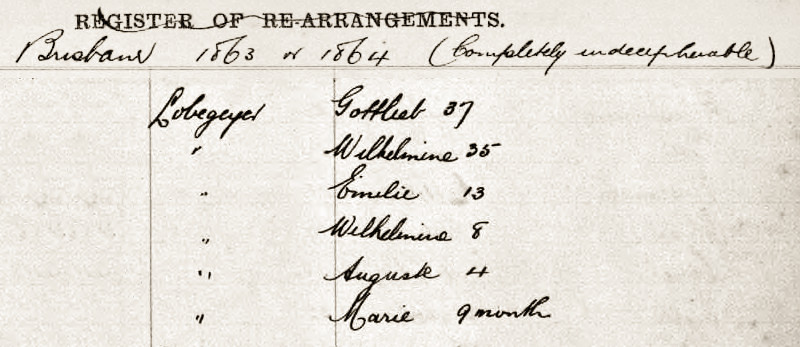 REGISTER OF RE-ARRANGEMENTS.
Brisbane 1863 or 1864 (Completely indecipherable)
Lobegeyer Gottlieb 37
" Wilhelmine 35
" Emilie 13
" Wilhelmine 8
" Auguste 4
" Marie 9 month